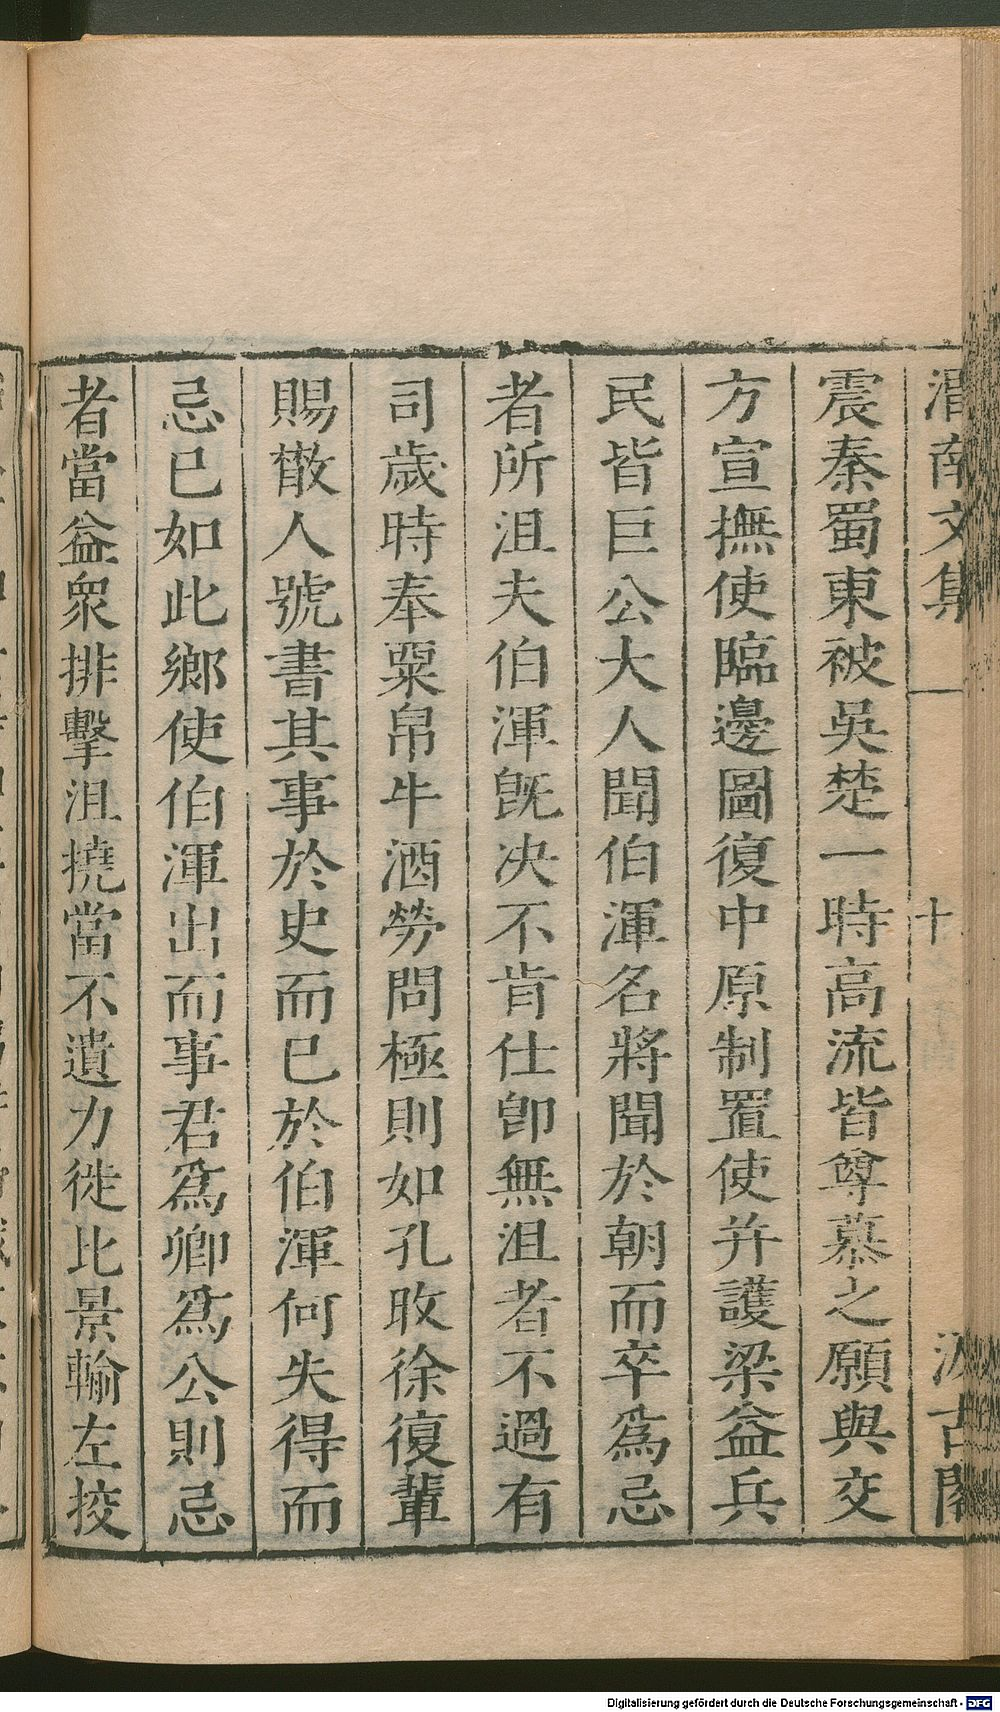 渭南文集 十 汲古閣
震秦蜀東被吳楚一時高流皆尊慕之願與交
方宣撫使臨邊圖復中原制置使并護梁益兵
民皆巨公大人聞伯渾名將聞於朝而卒爲忌
者所沮夫伯渾旣决不肯仕卽無沮者不過有
司歲時奉粟帛牛酒勞問極則如孔旼徐復輩
賜散人號書其事於史而已於伯渾何失得而
忌已如此鄉使伯渾出而事君爲卿爲公則忌
者當益衆排擊沮撓當不遺力徙比景輸左挍
Digitalisierung gefördert durch die Deutsche Forschungsgemeinschaft - DFG